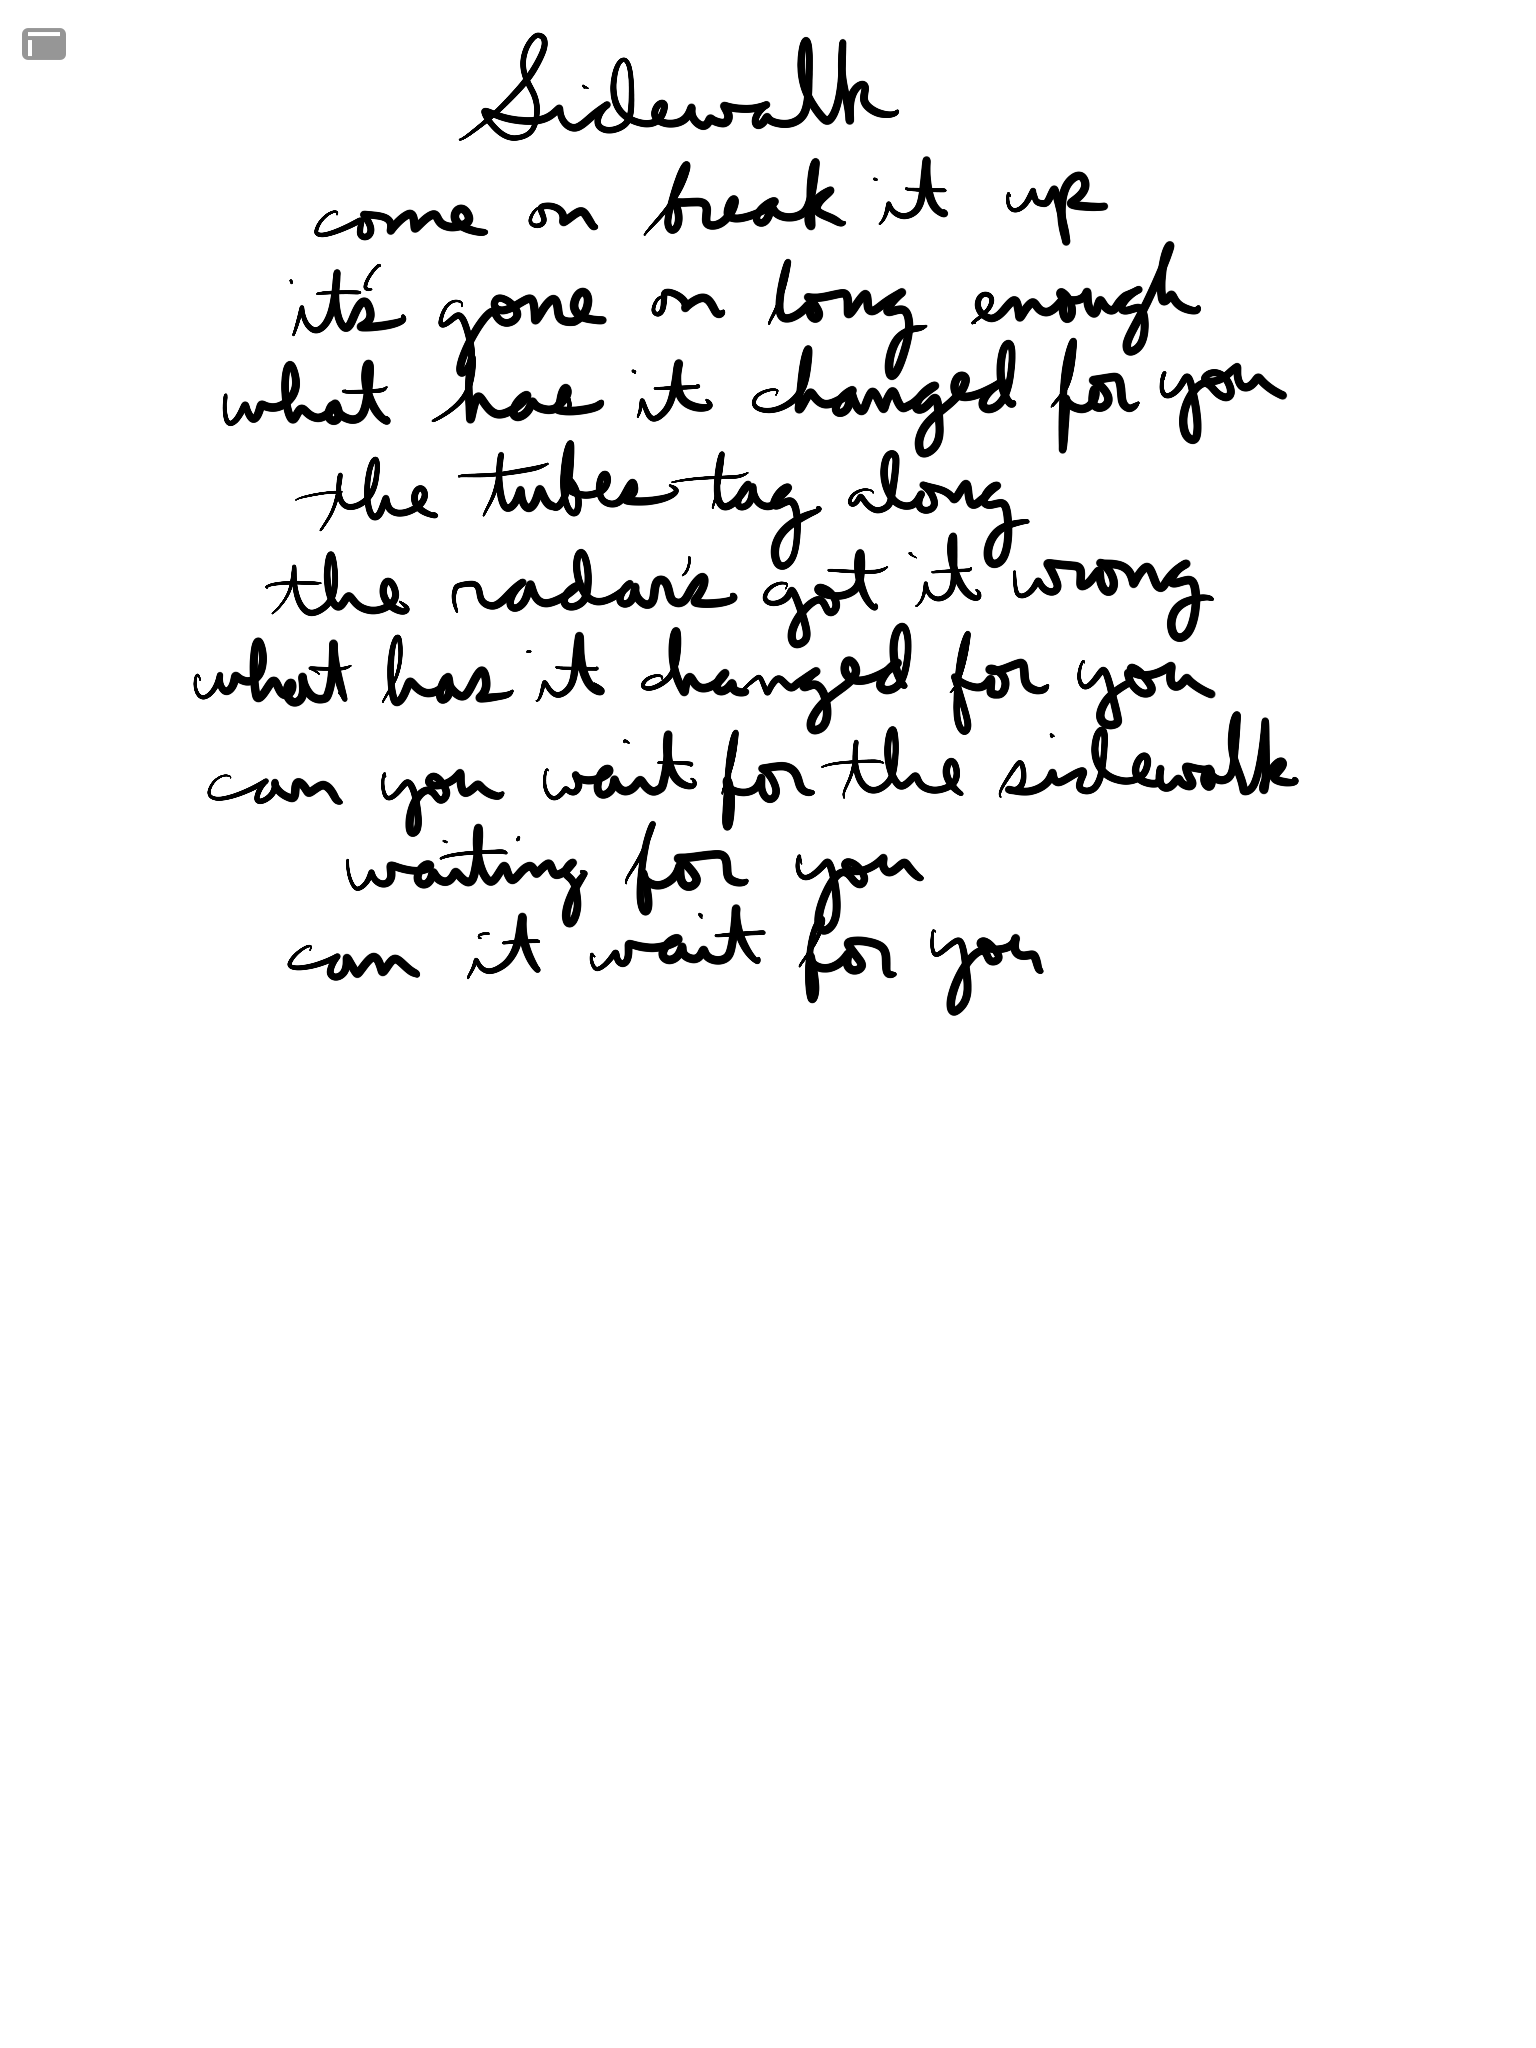 Sidewalk
come on break it up
it's gone on long enough
what has it changed for you
the tubes tag along
the radar's got it wrong
what has it changed for you
can you wait for the sidewalk
waiting for you
can it wait for you